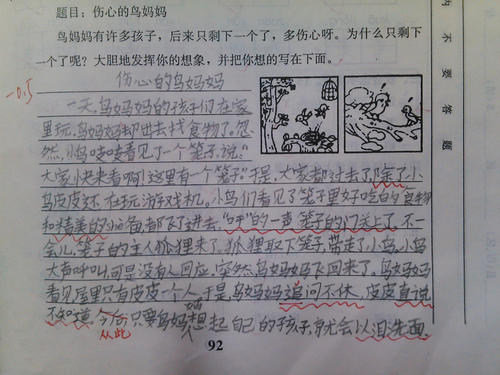 题目：伤心的鸟妈妈
鸟妈妈有许多孩子，后来只剩下一个了，多伤心呀。为什么只剩下
一个了呢？大胆地发挥你的想象，并把你想的写在下面。
伤心的鸟妈妈
一天鸟妈妈的孩子们在家
里玩，鸟妈妈却出去找食物了。忽
然，小鸟喳喳看见了一个笼子，说：“
大家快来看啊！这里有一个笼子。”于是，大家都过去了，除了小
鸟皮皮还在玩游戏机。小鸟们看见了笼子里好吃的食物
和精美的设备，都飞了进去，“呯”的一声笼子的门关上了，不一
会儿，笼子的主人狐狸来了，狐狸取下笼子，带走了小鸟，小鸟
大声呼叫，可是没有人回应。突然鸟妈妈飞回来了。鸟妈妈
看见屋里只有皮皮一个人，于是，鸟妈妈追问不休，皮皮直说
不知道。今后只要鸟妈妈想起自己的孩子，就会以泪洗面。
从此
92
-0.5
内不要答题